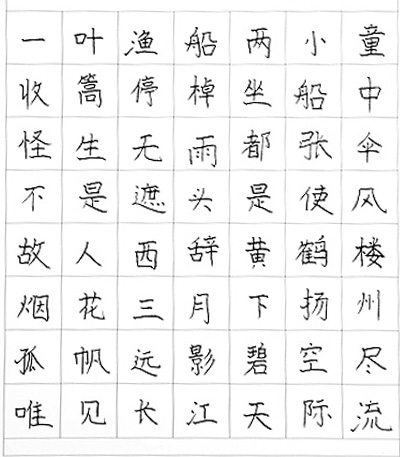 一叶渔船两小童
收篙停棹坐船中
怪生无雨都张伞
不是遮头是使风
故人西辞黄鹤楼
烟花三月下扬州
孤帆远影碧空尽
唯见长江天际流